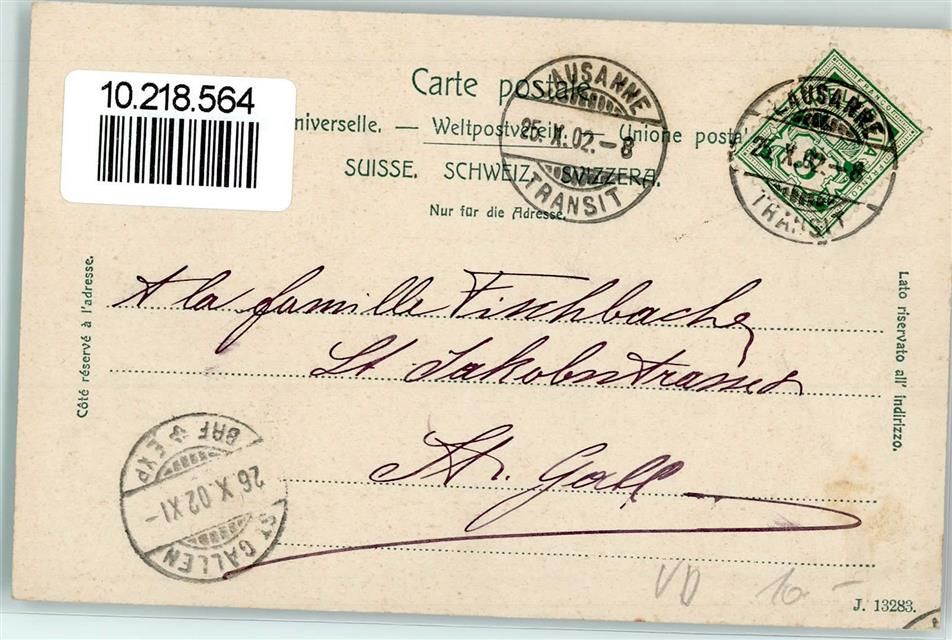 Carte postale.
10.218.564
niverselle. — Weltpostverein. — Unione posta
SUISSE. SCHWEIZ. SVIZZERA.
Nur für die Adresse.
LAUSANNE
25.X.02.-8
TRANSIT
LAUSANNE
25.X.02.-8
TRANSIT
FRANCO
Côté réservé à l'adresse.
Lato riservato all' indirizzo.
A la famille Fischbacher
St. Jakobstrasse
St. Gall
BRF EXP
26.X.02 XI-
ST. GALLEN
VD 10.-
J. 13283.